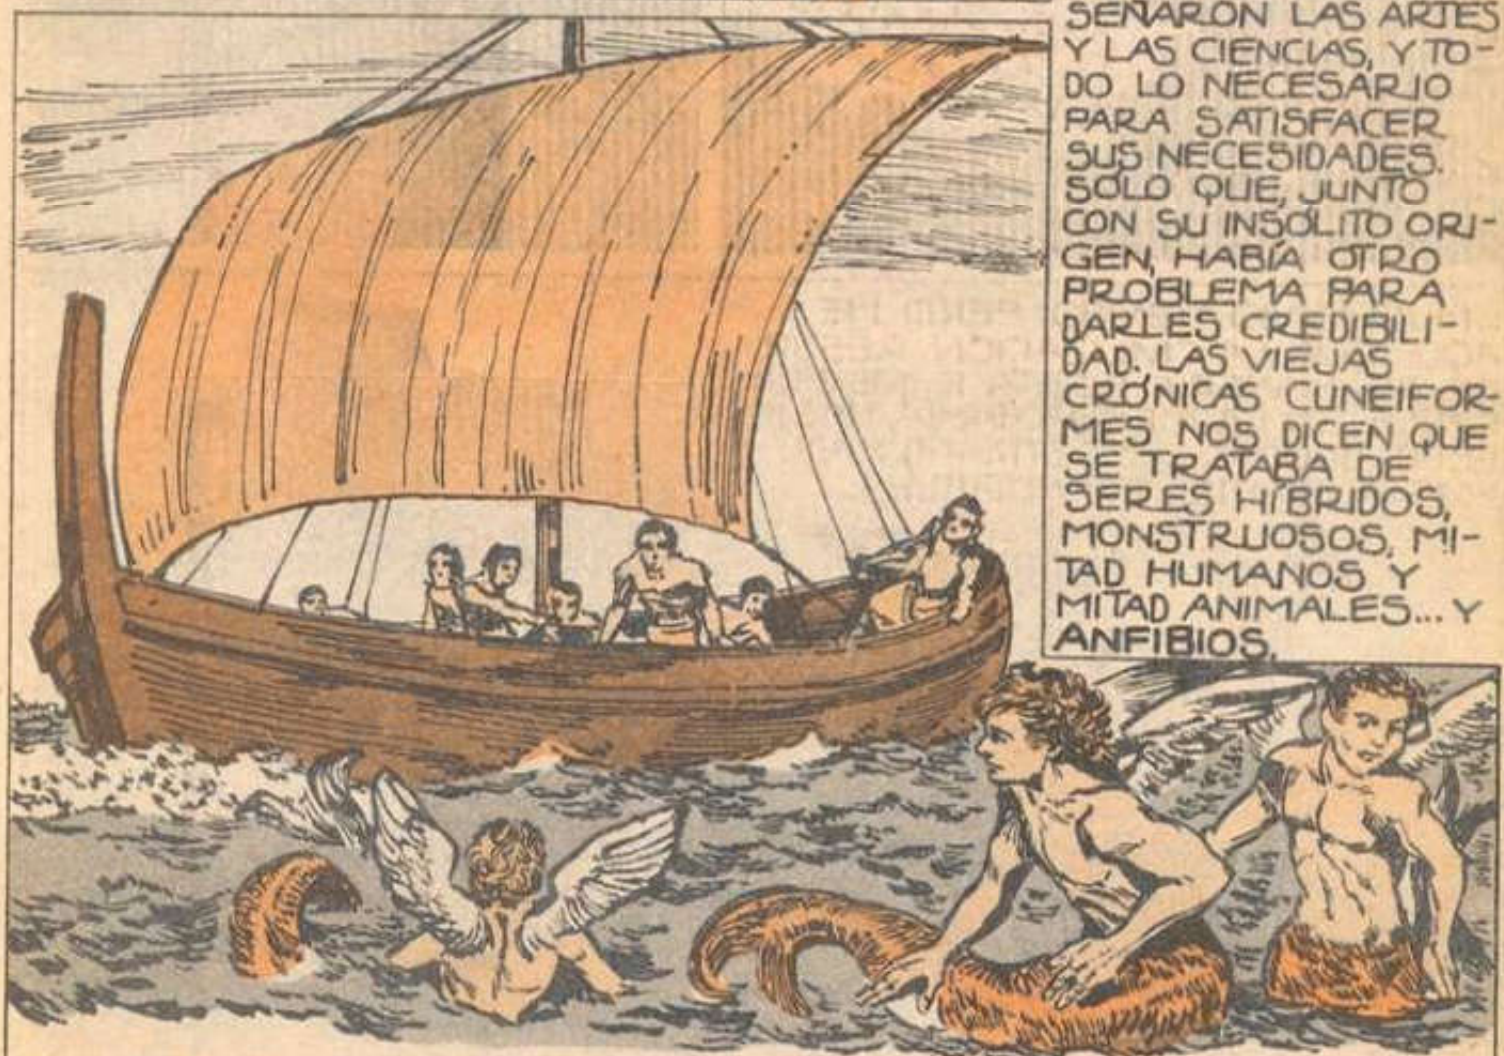 SEÑARON LAS ARTES
Y LAS CIENCIAS, Y TO-
DO LO NECESARIO
PARA SATISFACER
SUS NECESIDADES.
SÓLO QUE, JUNTO
CON SU INSÓLITO ORI-
GEN, HABÍA OTRO
PROBLEMA PARA
DARLES CREDIBILI-
DAD. LAS VIEJAS
CRÓNICAS CUNEIFOR-
MES NOS DICEN QUE
SE TRATABA DE
SERES HÍBRIDOS,
MONSTRUOSOS, MI-
TAD HUMANOS Y
MITAD ANIMALES... Y
ANFIBIOS.